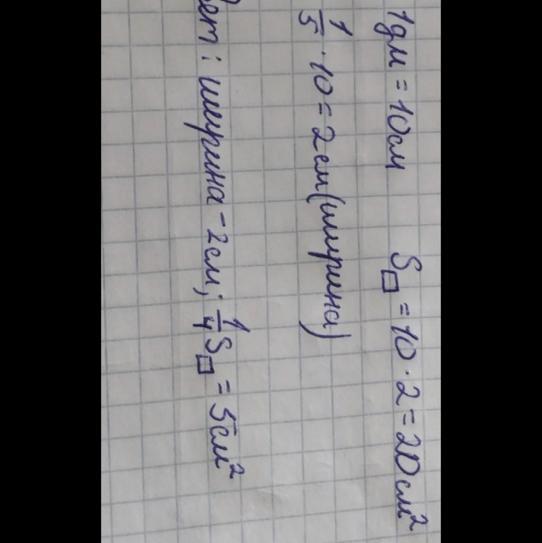 1дм = 10см S□ = 10 · 2 = 20см²
1/5 · 10 = 2см (ширина)
: ширина - 2см; 1/4 S□ = 5см²